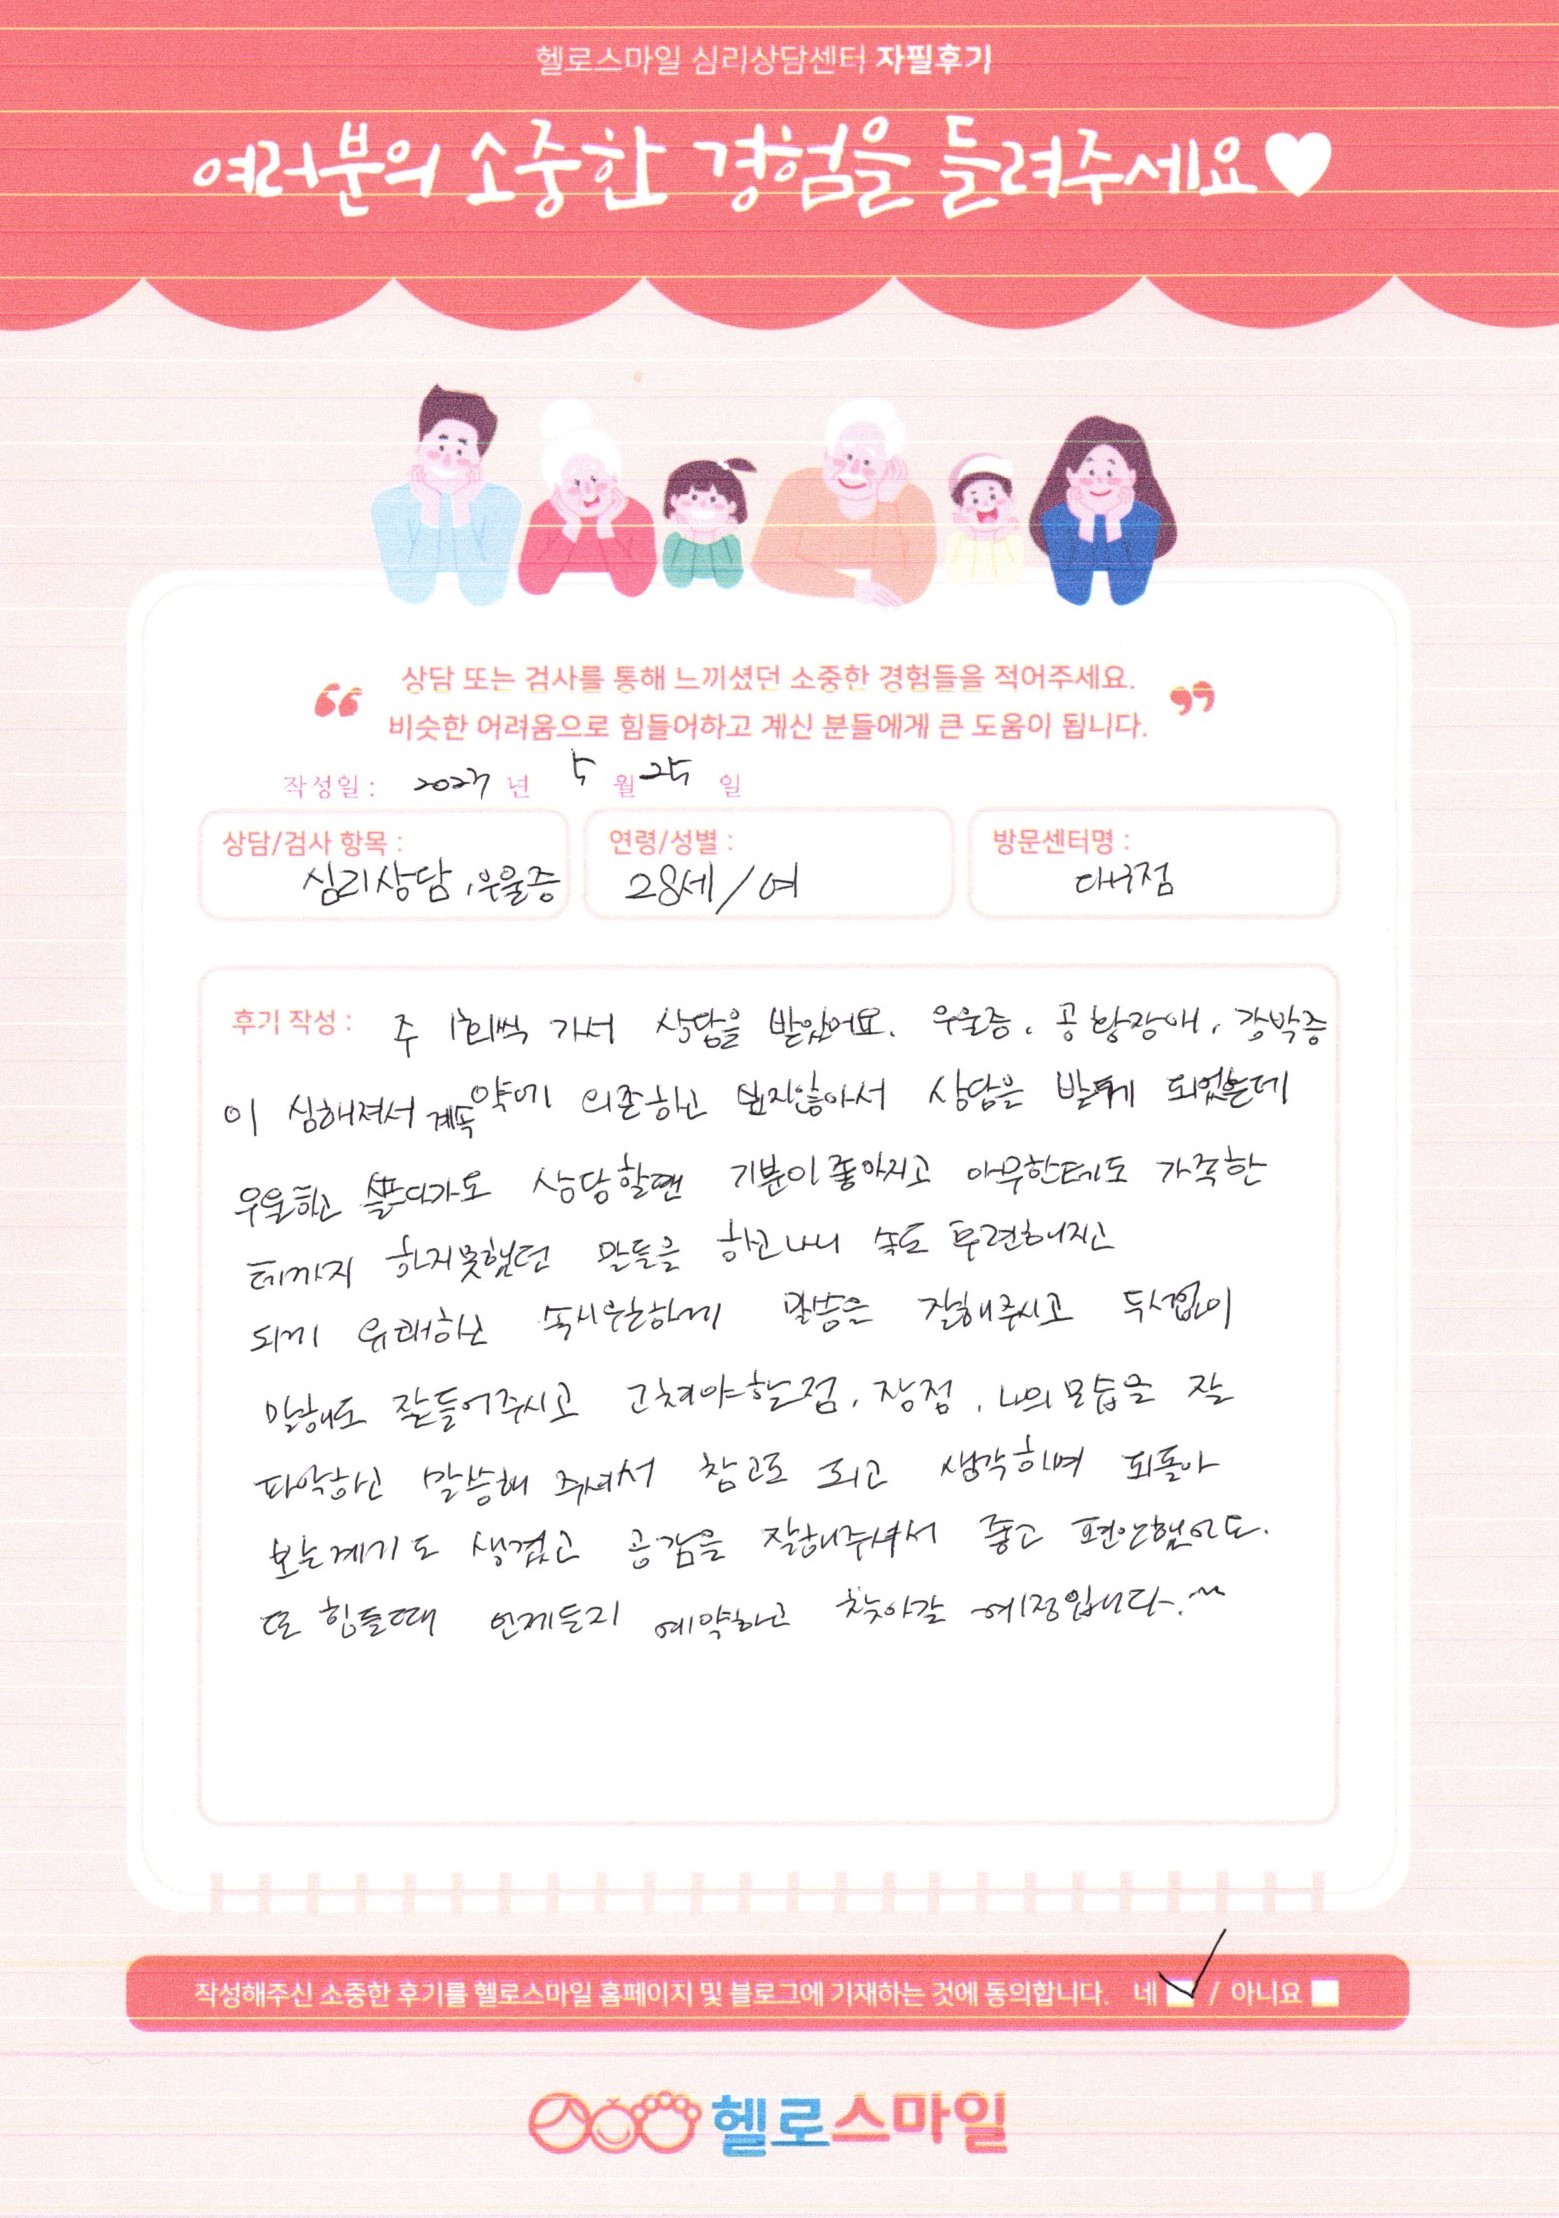 헬로스마일 심리상담센터 자필후기
여러분의 소중한 경험을 들려주세요♥
“ 상담 또는 검사를 통해 느끼셨던 소중한 경험들을 적어주세요. ”
비슷한 어려움으로 힘들어하고 계신 분들에게 큰 도움이 됩니다.
작성일 : 2023 년 5 월 25 일
상담/검사 항목 : 연령/성별 : 방문센터명 :
심리상담, 우울증 28세/여 대구점
후기 작성 : 주 1회씩 가서 상담을 받았어요. 우울증, 공황장애, 강박증
이 심해져서 계속 약에 의존하고 싶지않아서 상담을 받게 되었는데
우울하고 슬프다가도 상담할땐 기분이 좋아지고 아무한테도 가족한
테까지 하지못했던 말들을 하고나니 속도 후련해지고
되게 유쾌하고 속시원하게 말씀을 잘해주시고 두서없이
말해도 잘들어주시고 고쳐야할점, 장점, 나의모습을 잘
파악하고 말씀해 주셔서 참고도 되고 생각하며 되돌아
보는계기도 생겼고 공감을 잘해주셔서 좋고 편안했어요.
또 힘들때 언제든지 예약하고 찾아갈 예정입니다~.^^
작성해주신 소중한 후기를 헬로스마일 홈페이지 및 블로그에 기재하는 것에 동의합니다. 네 ☑ / 아니요 □
헬로스마일